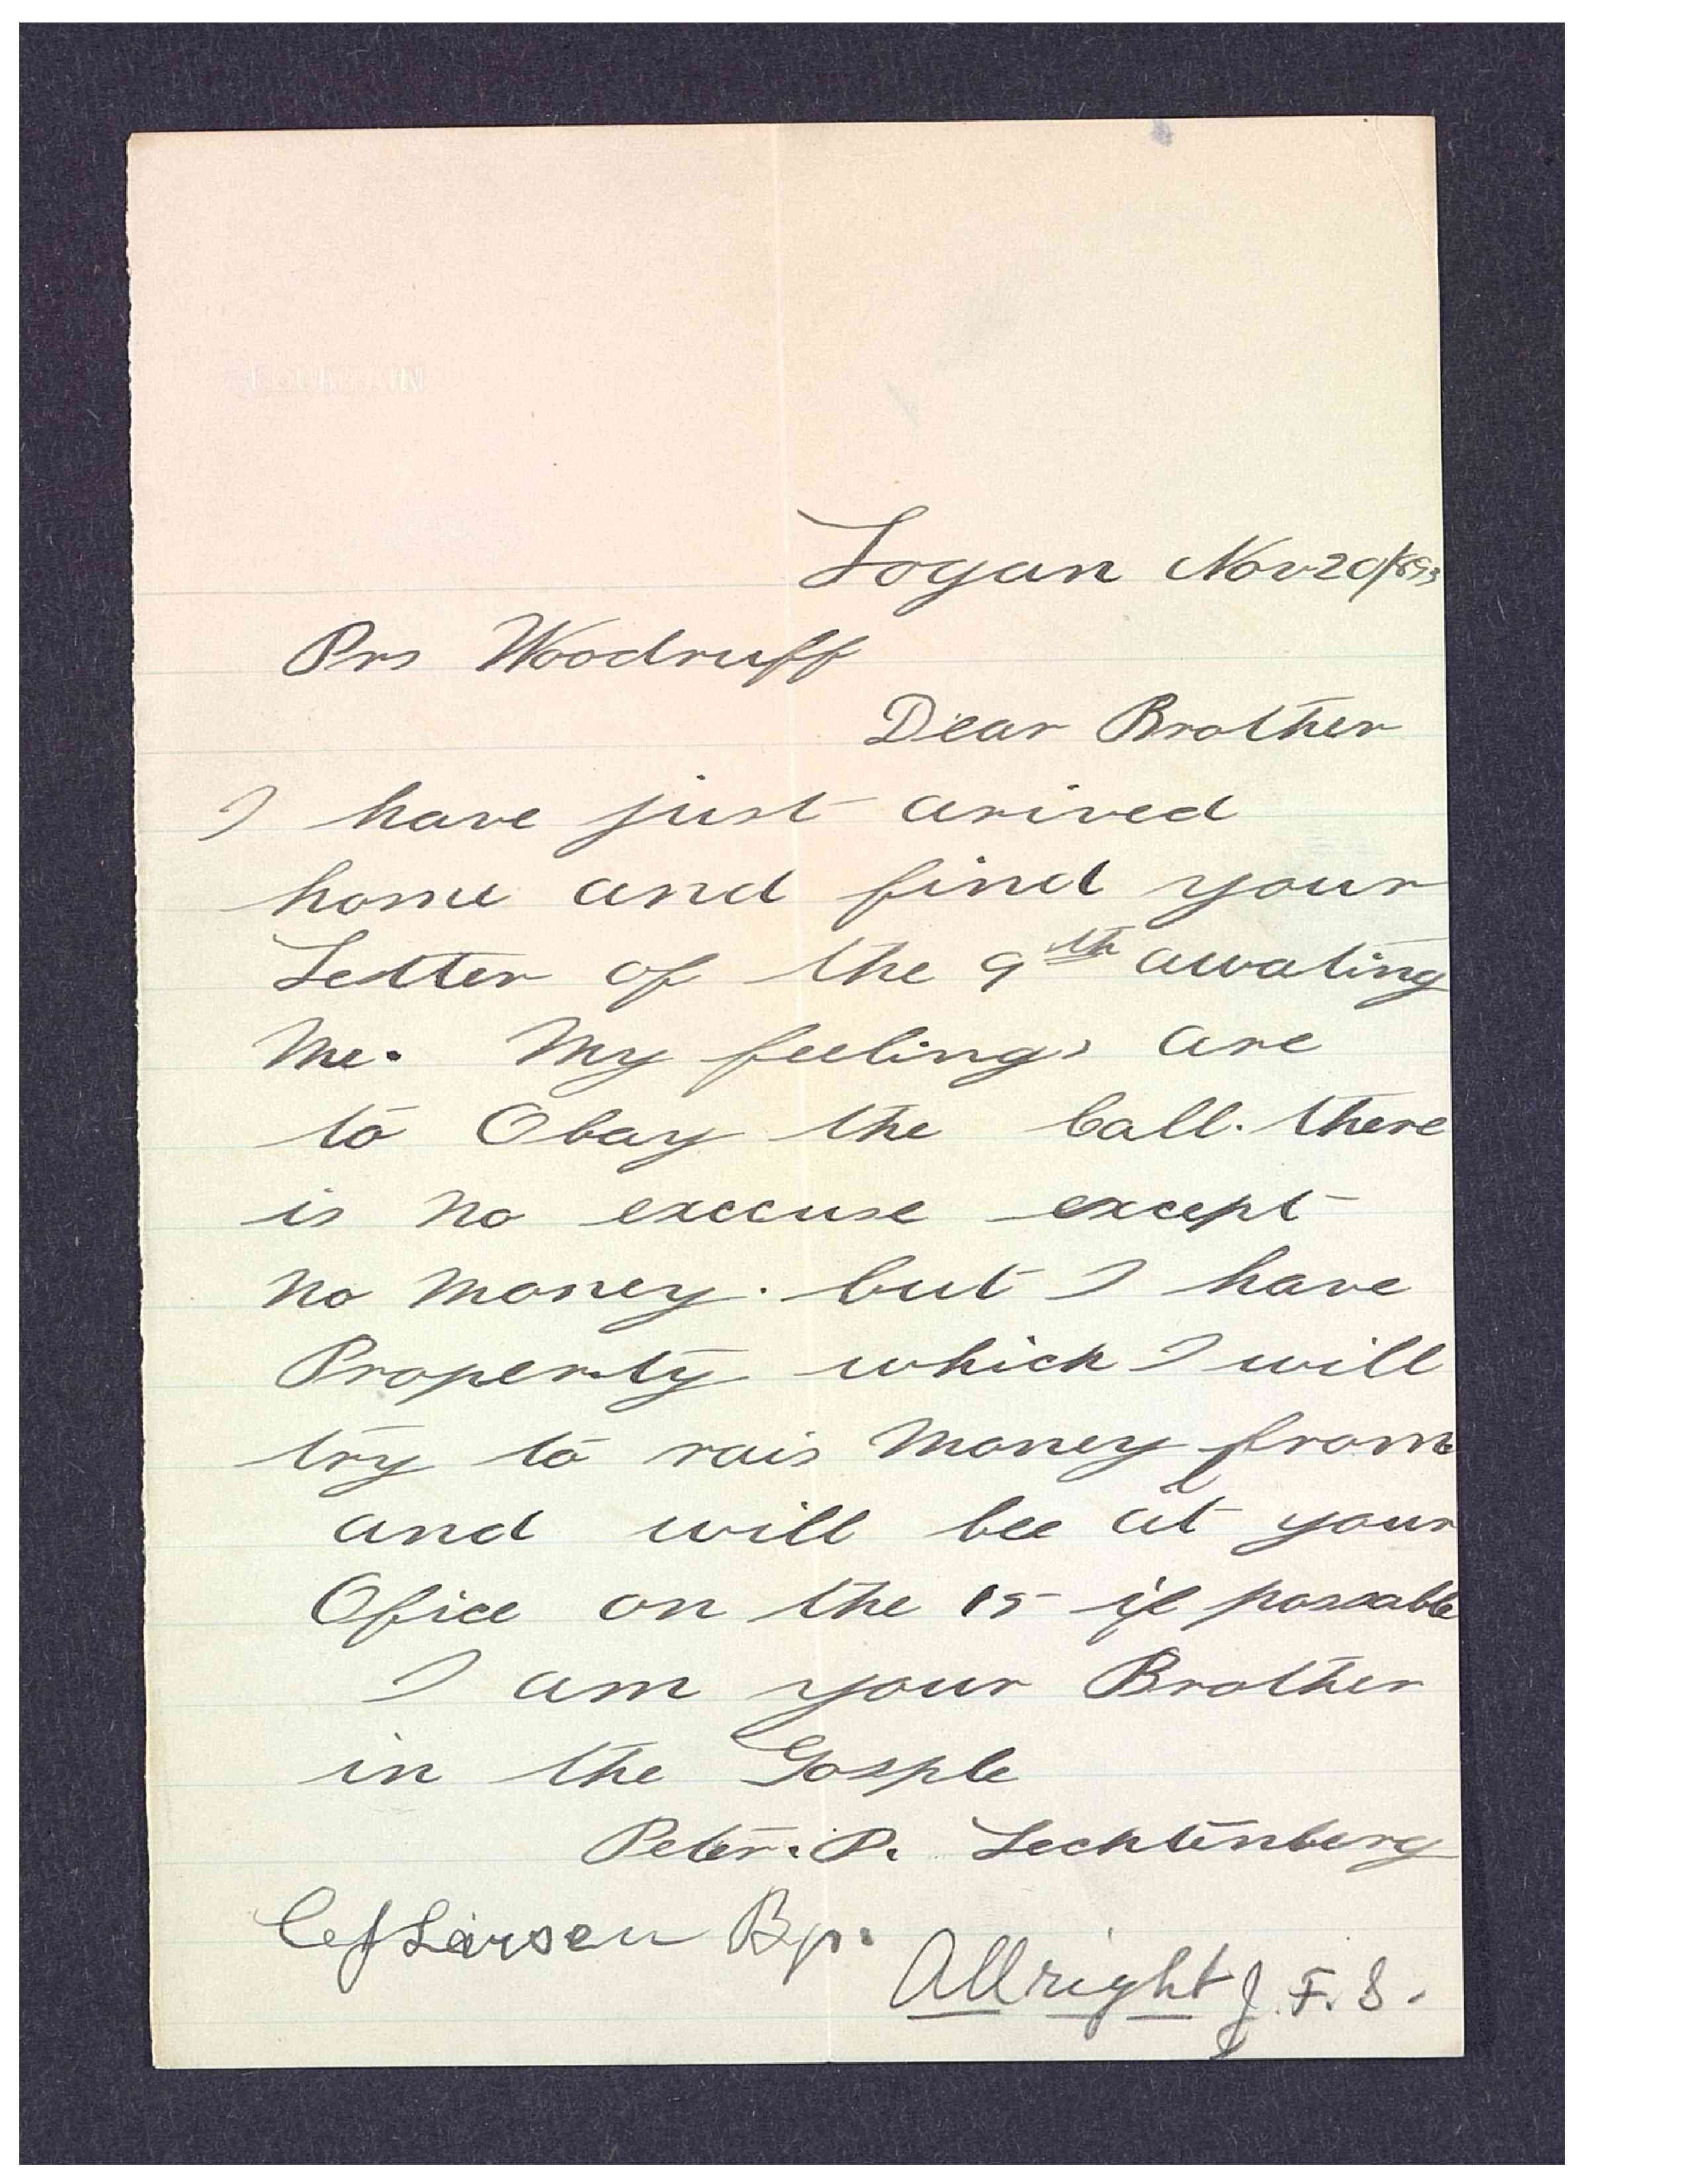 Logan Nov 20/1893
Prs Woodruff
Dear Brother
I have just arived
home and find your
Letter of the 9th awating
Me. My feelings are
to Obay the Call. there
is no exccuse except
no money. but I have
Property which I will
try to rais Money from
and will bee at your
Ofice on the 15 if possable
I am your Brother
in the Gosple
Peter. P. Lechtenberg
C J Larsen Bp.
Allright J. F. S.